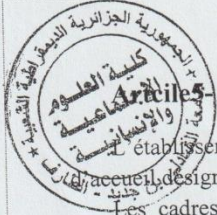 الجمهورية الجزائرية الديمقراطية الشعبية
كلية العلوم
الاجتماعية
والإنسانية
Artcile5-
L'établissem
d'accueil désign
Les cadres